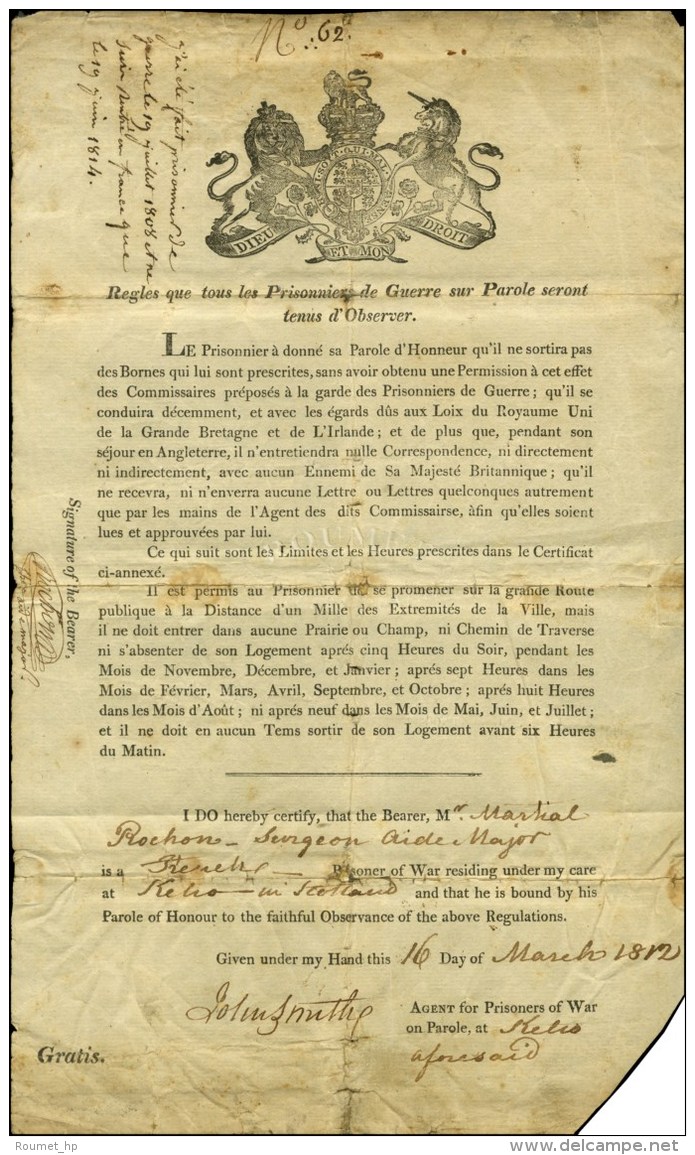 No. 62.
j'ai été fait prisonnier de
guerre le 19 juillet 1808 et ne
suis rentré en france que
le 19 juin 1814.
SOIT QUI MAL
DIEU ET MON DROIT
Regles que tous les Prisonniers de Guerre sur Parole seront
tenus d'Observer.
LE Prisonnier à donné sa Parole d'Honneur qu'il ne sortira pas
des Bornes qui lui sont prescrites, sans avoir obtenu une Permission à cet effet
des Commissaires préposés à la garde des Prisonniers de Guerre; qu'il se
conduira décemment, et avec les égards dûs aux Loix du Royaume Uni
de la Grande Bretagne et de L'Irlande; et de plus que, pendant son
séjour en Angleterre, il n'entretiendra nulle Correspondence, ni directement
ni indirectement, avec aucun Ennemi de Sa Majesté Britannique; qu'il
ne recevra, ni n'enverra aucune Lettre ou Lettres quelconques autrement
que par les mains de l'Agent des dits Commissairse, àfin qu'elles soient
lues et approuvées par lui.
Ce qui suit sont les Limites et les Heures prescrites dans le Certificat
ci-annexé.
Il est permis au Prisonnier de se promener sur la grande Route
publique à la Distance d'un Mille des Extremités de la Ville, mais
il ne doit entrer dans aucune Prairie ou Champ, ni Chemin de Traverse
ni s'absenter de son Logement aprés cinq Heures du Soir, pendant les
Mois de Novembre, Décembre, et Janvier; aprés sept Heures dans les
Mois de Février, Mars, Avril, Septembre, et Octobre; aprés huit Heures
dans les Mois d'Août; ni aprés neuf dans les Mois de Mai, Juin, et Juillet;
et il ne doit en aucun Tems sortir de son Logement avant six Heures
du Matin.
Signature of the Bearer,
Rochon
I DO hereby certify, that the Bearer, Mr. Martial
Rochon - Surgeon Aide Major
is a French Prisoner of War residing under my care
at Kelso - in Scotland and that he is bound by his
Parole of Honour to the faithful Observance of the above Regulations.
Given under my Hand this 16 Day of March 1812
John Smith
AGENT for Prisoners of War
on Parole, at Kelso
aforesaid
Gratis.
Roumet_hp
www.delcampe.net